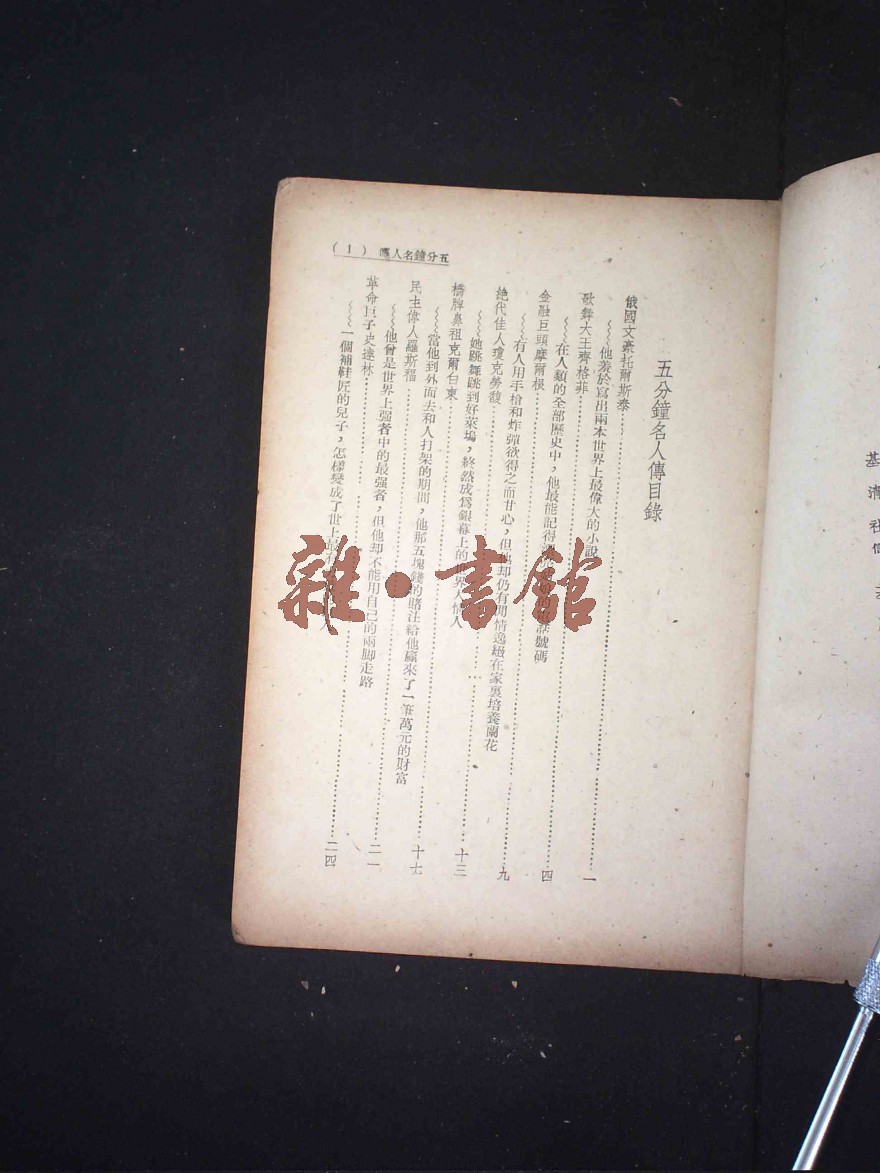 五分鐘名人傳 ( 1 )
五分鐘名人傳目錄
俄國文豪托爾斯泰
他羞於寫出兩本世界上最偉大的小說……一
歌舞大王齊格菲
在人類的全部歷史中，他最能記得 號碼……四
金融巨頭摩爾根
有人用手槍和炸彈欲得之而甘心，但他却仍有閒情逸緻在家裏培養蘭花……九
絶代佳人瓊克勞馥
她跳舞跳到好萊塢，終然成爲銀幕上的 界人情人……十三
橋牌鼻祖克爾白東
當他到外面去和人打架的期間，他那五塊錢的賭注給他贏來了一筆萬元的財富……十七
民主偉人羅斯福
他曾是世界上强者中的最强者，但他却不能用自己的兩脚走路……二一
革命巨子史達林
一個補鞋匠的兒子，怎樣變成了世上最 人……二四
雜·書館
基
清
社